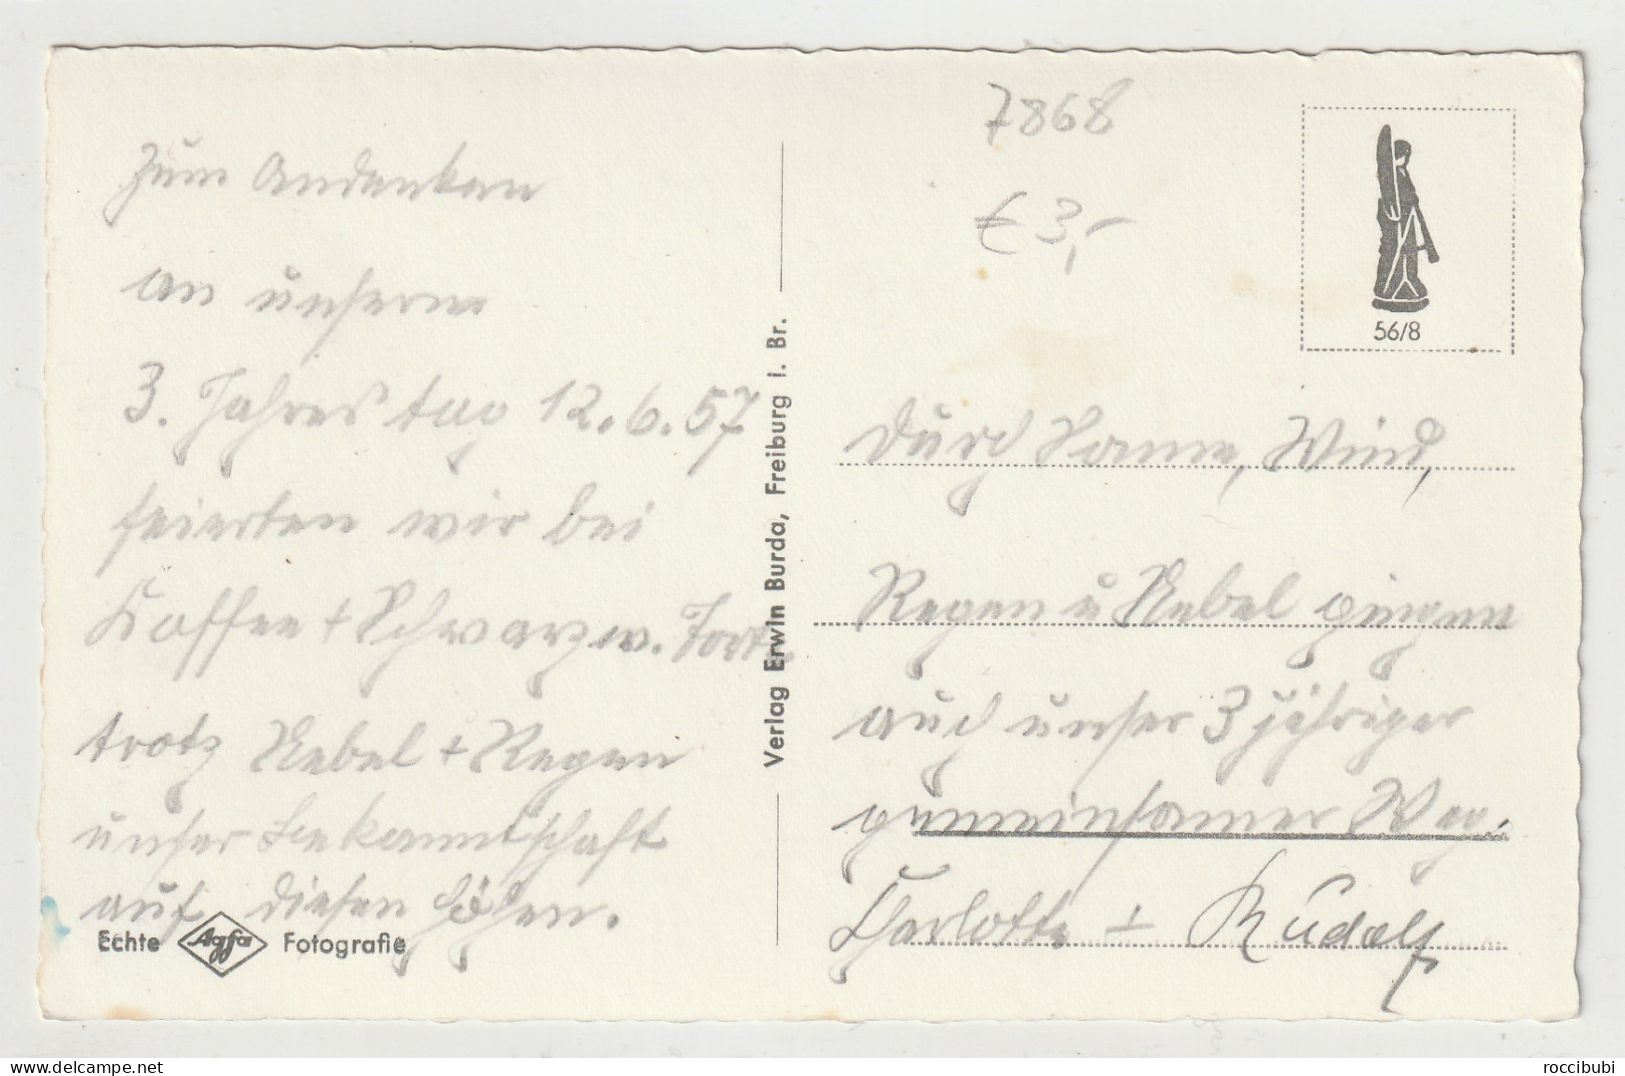 Zum Andenken
an unsern
3. Jahrestag 12.6.57
feierten wir bei
Kaffee + Schwarzw. Torte
trotz Nebel + Regen
unser Bekanntschaft
auf diesen Höhen.
Echte Agfa Fotografie
Verlag Erwin Burda, Freiburg i. Br.
7868
€ 3,-
56/8
Durch Sonne, Wind,
Regen u Nebel gingen
auch unser 3 jähriger
gemeinsamer Weg.
Charlotte + Rudolf
roccibubi